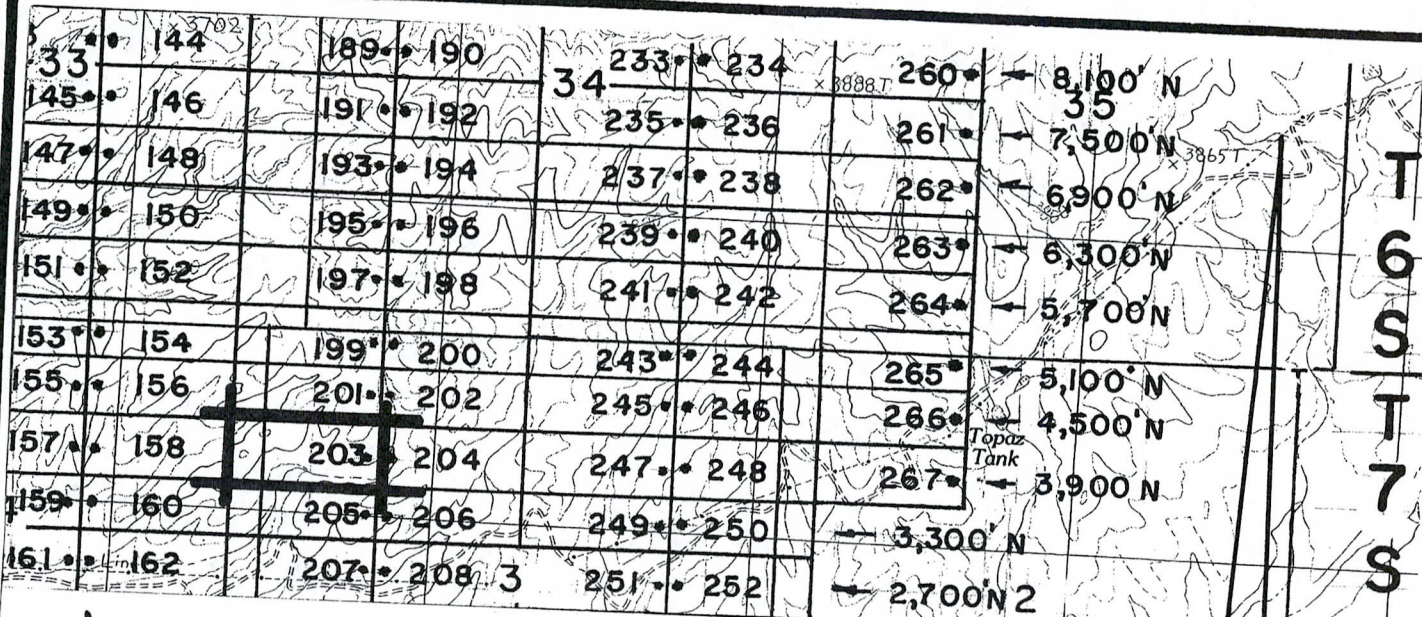 144 × 3702 189 190 233 234 260 8,100' N
33 34 × 3888 T 35
145 146 191 192 235 236 261 7,500' N
3865 T
147 148 193 194 237 238 262 6,900' N
149 150 195 196 239 240 263 6,300' N
151 152 197 198 241 242 264 5,700' N
153 154 199 200 243 244 265 5,100' N
155 156 201 202 245 246 266 4,500' N
Topaz
Tank
157 158 203 204 247 248 267 3,900 N
159 160 205 206 249 250 3,300' N
161 162 207 208 3 251 252 2,700' N 2
T
6
S
T
7
S